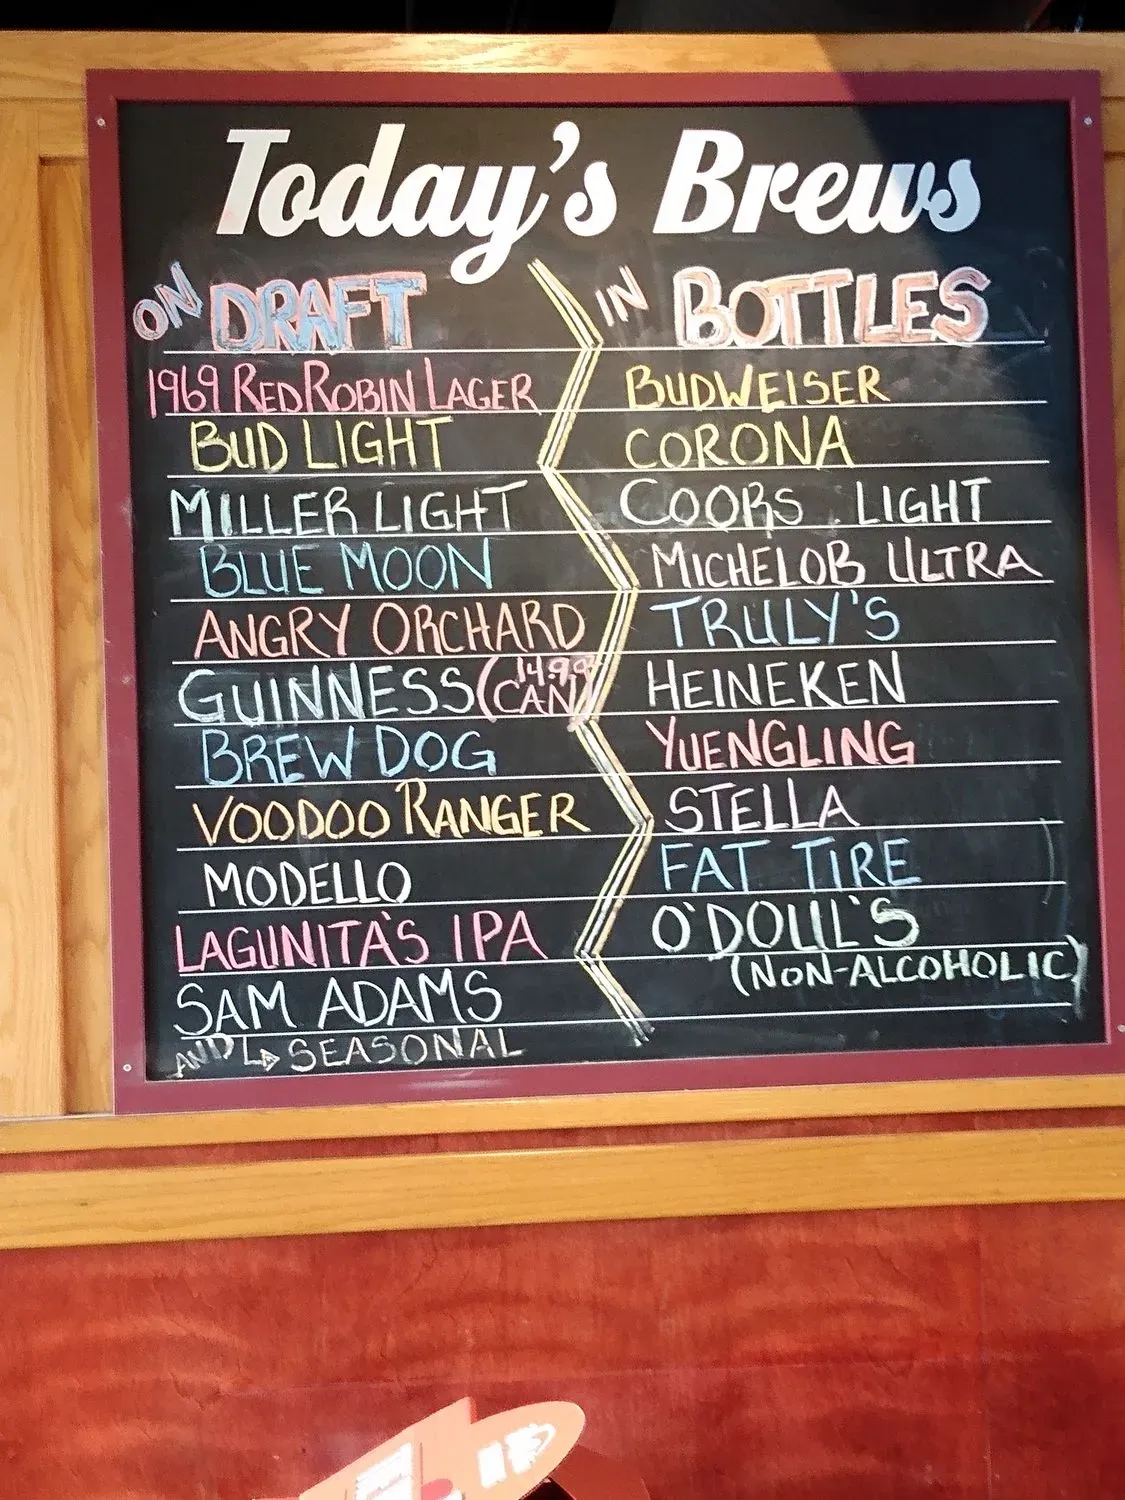 Today's Brews
ON DRAFT
1969 RED ROBIN LAGER
BUD LIGHT
MILLER LIGHT
BLUE MOON
ANGRY ORCHARD
GUINNESS (14.9oz CAN)
BREW DOG
VOODOO RANGER
MODELLO
LAGUNITA'S IPA
SAM ADAMS
AND ↳ SEASONAL
IN BOTTLES
BUDWEISER
CORONA
COORS LIGHT
MICHELOB ULTRA
TRULY'S
HEINEKEN
YUENGLING
STELLA
FAT TIRE
O'DOUL'S
(NON-ALCOHOLIC)